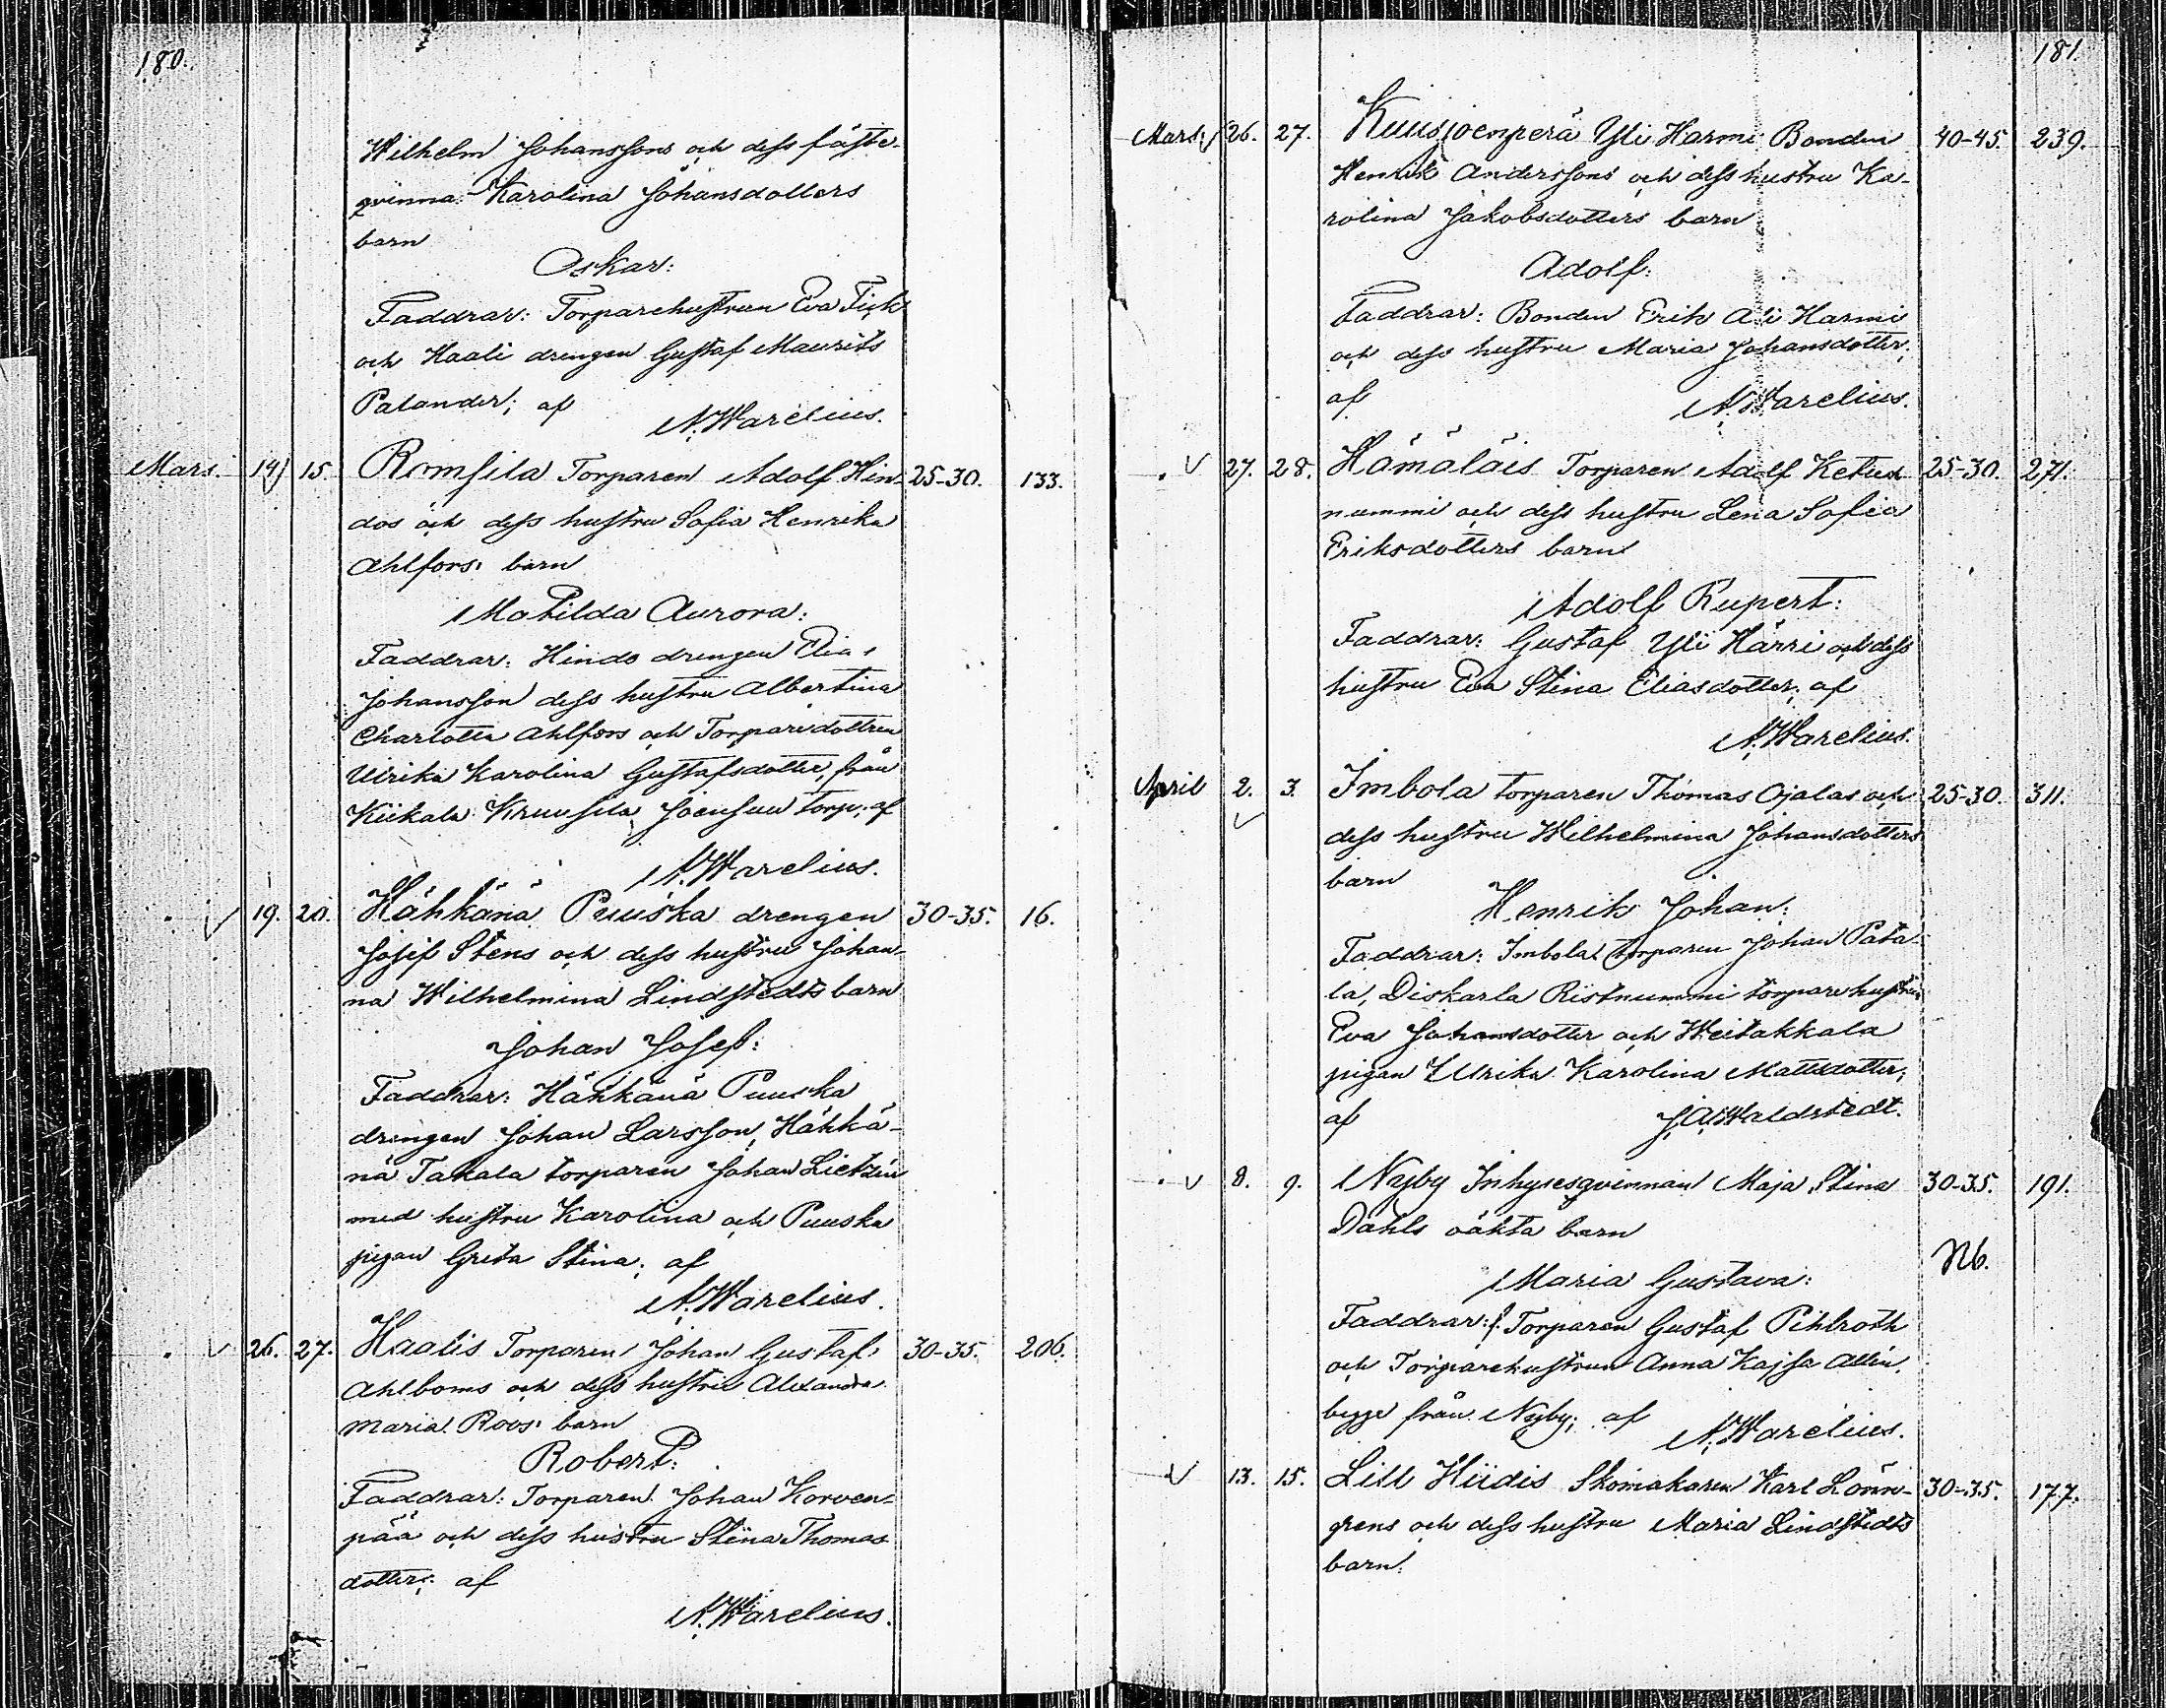 180.
Wilhelm Johanssons och dess fäste-
qvinna Karolina Johansdotters
barn
Oskar:
Faddrar: Torparehustrun Eva Fick
och Haali drengen Gustaf Maurits
Palander; af
A. Warelius.
Mars. 14 15. Romsila Torparen Adolf Hin- 25-30. 133.
dos och dess hustru Sofia Henrika
Ahlfors barn
Matilda Aurora:
Faddrar: Hindo drengen Elias
Johansson dess hustru Albertina
Charlotta Ahlfors och Torparedottren
Ulrika Karolina Gustafsdotter, från
Kiikala Kruusila Joensuu torp; af
A. Warelius.
19. 20. Hähkänä Puuska drengen 30-35. 16.
Josef Stens och dess hustru Johan-
na Wilhelmina Lindstedts barn
Johan Josef:
Faddrar: Hähkänä Puuska
drengen Johan Larsson, Hähkä-
nä Takala torparen Johan Lietzén
med hustru Karolina och Puuska
pigan Greta Stina; af
A. Warelius.
26. 27. Haalis Torparen Johan Gustaf 30-35. 206.
Ahlboms och dess hustru Alexandra
Maria Roos barn
Robert:
Faddrar: Torparen Johan Korven-
pää och dess hustru Stina Thomas
dotter; af
A. Warelius.
181.
Mars 26. 27. Kuusjoenperä Yli Harmi Bonden 40-45. 239.
Henrik Anderssons och dess hustru Ka-
rolina Jakobsdotters barn
Adolf:
Faddrar: Bonden Erik Ali Harmi
och dess hustru Maria Johansdotter;
af
A. Warelius.
27. 28. Hämäläis Torparen Adolf Ketun 25-30. 271.
nummi och dess hustru Lena Sofia
Eriksdotters barn
Adolf Rupert:
Faddrar: Gustaf Yli Härri och dess
hustru Eva Stina Eliasdotter; af
A. Warelius.
April 2. 3. Imbola torparen Thomas Ojalas och 25-30. 311.
dess hustru Wilhelmina Johansdotters
barn
Henrik Johan:
Faddrar: Imbola torparen Johan Pata-
la, Diskarla Ristnummi torparehustrun
Eva Johansdotter och Weitakkala
pigan Ulrika Karolina Mattsdotter;
af
J. A. Waldstedt.
8. 9. Nyby Inhysesqvinnan Maja Stina 30-35. 191.
Dahls oäkta barn
Nb.
Maria Gustava:
Faddrar: f. Torparen Gustaf Pihlroth
och Torparehustrun Anna Kajsa Allén,
begge från Nyby; af
A. Warelius.
13. 15. Lill Hiidis Skomakaren Karl Lönn- 30-35. 177.
grens och dess hustru Maria Lindstedts
barn: